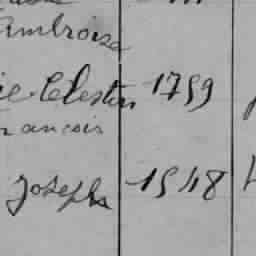 Ambroise
ie Celestin 1759
rancois
Joseph 1548